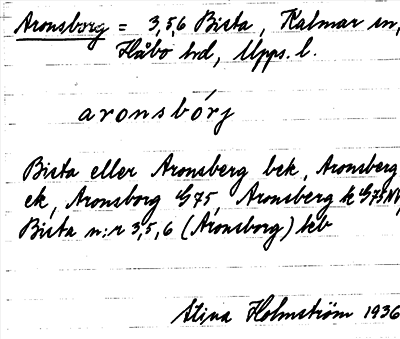 Aronsborg = 3,5,6 Bista, Kalmar sn,
Håbo hd, Upps. l.
aronsbórj
Bista eller Aronsberg bek, Aronsberg
ek, Aronsborg G75, Aronsberg k G75NV,
Bista n:r 3,5,6 (Aronsborg) kb
Stina Holmström 1936